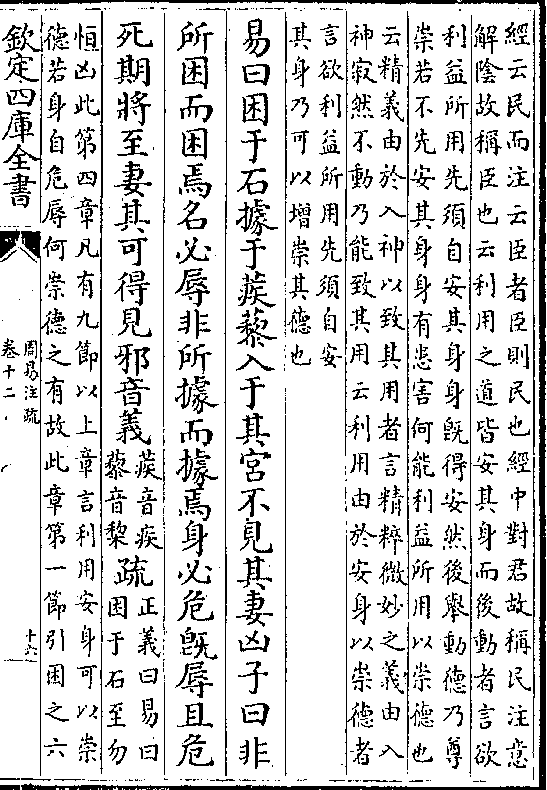 經云民而注云臣者臣則民也經中對君故稱民注意
解陰故稱臣也云利用之道皆安其身而後動者言欲
利益所用先須自安其身身旣得安然後舉動德乃尊
崇若不先安其身身有患害何能利益所用以崇德也
云精義由於入神以致其用者言精粹微妙之義由入
神寂然不動乃能致其用云利用由於安身以崇德者
言欲利益所用先須自安
其身乃可以增崇其德也
易曰困于石據于蒺藜入于其宮不見其妻凶子曰非
所困而困焉名必辱非所據而據焉身必危旣辱且危
死期將至妻其可得見邪音義
蒺音疾
藜音黎
疏
正義曰易曰
困于石至勿
恒凶此第四章凡有九節以上章言利用安身可以崇
德若身自危辱何崇德之有故此章第一節引困之六
欽定四庫全書
周易注疏
卷十二
十六